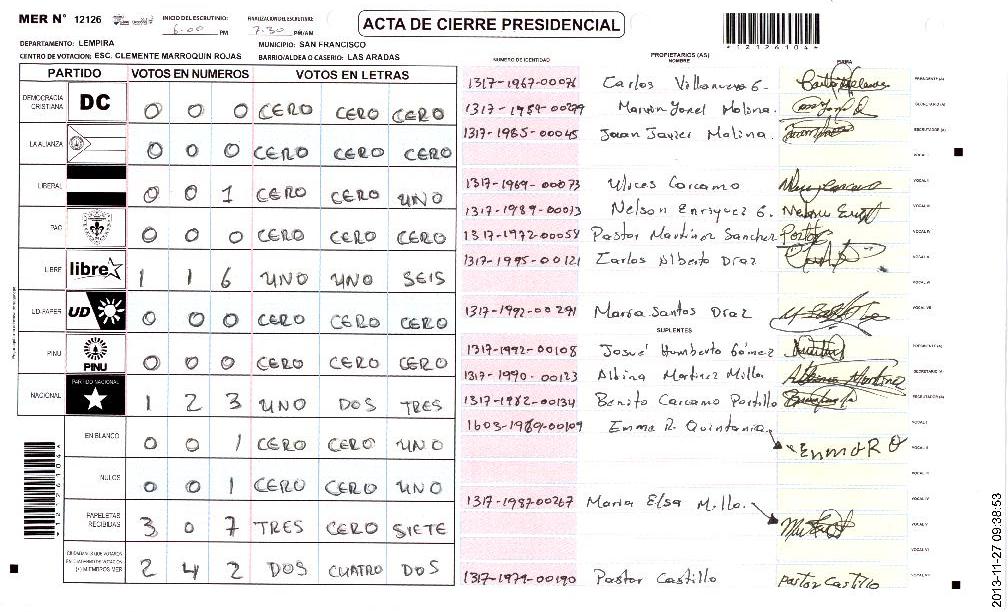 MER N° 12126
INICIO DEL ESCRUTINIO: 6:00 PM
FINALIZACION DEL ESCRUTINIO: 7:30 PM/AM
ACTA DE CIERRE PRESIDENCIAL
*12126104*
DEPARTAMENTO: LEMPIRA
MUNICIPIO: SAN FRANCISCO
CENTRO DE VOTACION: ESC. CLEMENTE MARROQUIN ROJAS
BARRIO/ALDEA O CASERIO: LAS ARADAS
PARTIDO VOTOS EN NUMEROS VOTOS EN LETRAS
DEMOCRACIA CRISTIANA DC 0 0 0 CERO CERO CERO
LA ALIANZA 0 0 0 CERO CERO CERO
LIBERAL 0 0 1 CERO CERO UNO
PAC 0 0 0 CERO CERO CERO
LIBRE libre 1 1 6 UNO UNO SEIS
UD-FAPER UD 0 0 0 CERO CERO CERO
PINU PINU 0 0 0 CERO CERO CERO
NACIONAL PARTIDO NACIONAL 1 2 3 UNO DOS TRES
EN BLANCO 0 0 1 CERO CERO UNO
NULOS 0 0 1 CERO CERO UNO
PAPELETAS RECIBIDAS 3 0 7 TRES CERO SIETE
CIUDADANOS QUE VOTARON EN CUADERNO DE VOTACION (+) MIEMBROS MER 2 4 2 DOS CUATRO DOS
*12126104*
PROPIETARIOS (AS)
NUMERO DE IDENTIDAD NOMBRE FIRMA
1317-1967-00076 Carlos Villanueva G. PRESIDENTE (A)
1317-1989-00299 Marvin Yonel Molina. SECRETARIO (A)
1317-1985-00045 Juan Javier Molina. ESCRUTADOR (A)
VOCAL I
1317-1969-00073 Ulices Carcamo VOCAL II
1317-1989-00013 Nelson Enriquez G. VOCAL III
1317-1972-00054 Pastor Martinez Sanchez Pastor VOCAL IV
1317-1995-00121 Carlos Alberto Diaz VOCAL V
VOCAL VI
1317-1992-00291 Maria Santos Diaz VOCAL VII
SUPLENTES
1317-1992-00108 Josué Humberto Gómez PRESIDENTE (A)
1317-1990-00123 Albina Martinez Milla SECRETARIO (A)
1317-1982-00134 Benito Carcamo Portillo ESCRUTADOR (A)
1603-1969-00109 Emma R. Quintania. VOCAL I
Emma R Q VOCAL II
VOCAL III
1317-1987-00267 Maria Elsa Milla. VOCAL IV
VOCAL V
VOCAL VI
1317-1979-00190 Pastor Castillo Pastor Castillo VOCAL VII
2013-11-27 09:38:53